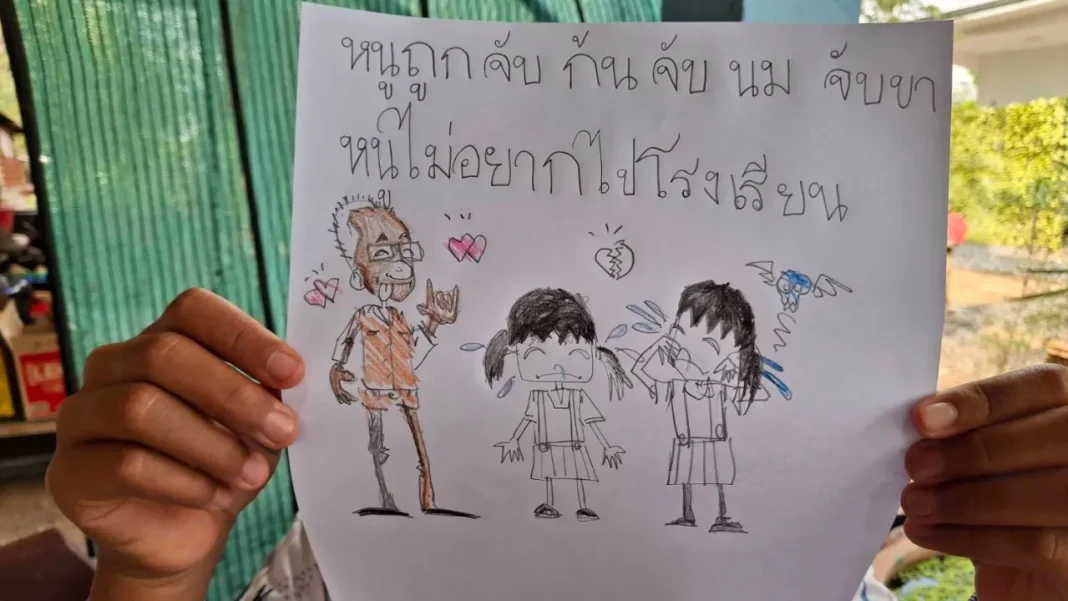 หนูถูกจับ ก้น จับ นม จับขา
หนูไม่อยากไปโรงเรียน